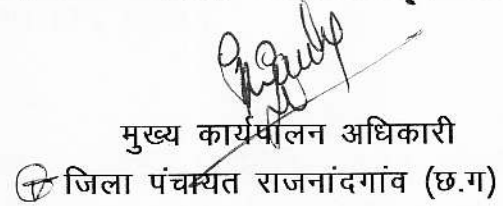 मुख्य कार्यपालन अधिकारी
जिला पंचायत राजनांदगांव (छ.ग)